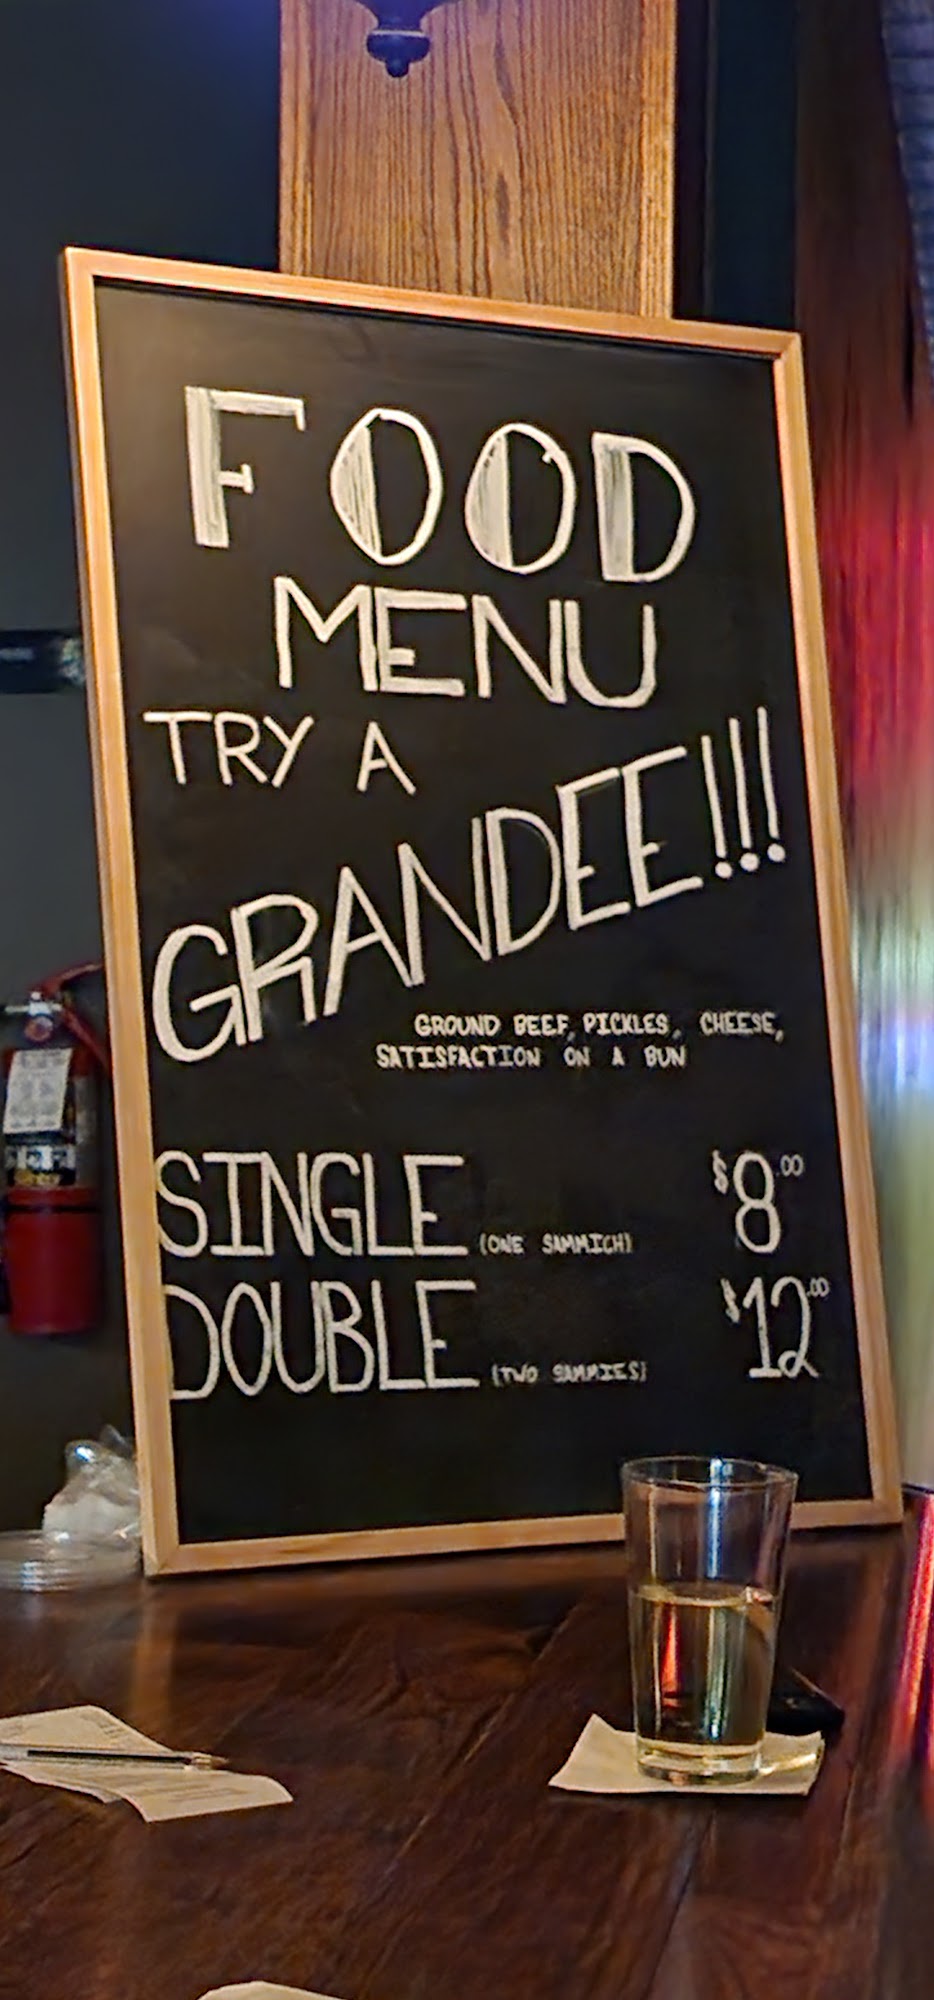 FOOD
MENU
TRY A
GRANDEE!!!
GROUND BEEF, PICKLES, CHEESE,
SATISFACTION ON A BUN
SINGLE (ONE SAMMICH) $8.00
DOUBLE (TWO SAMMIES) $12.00